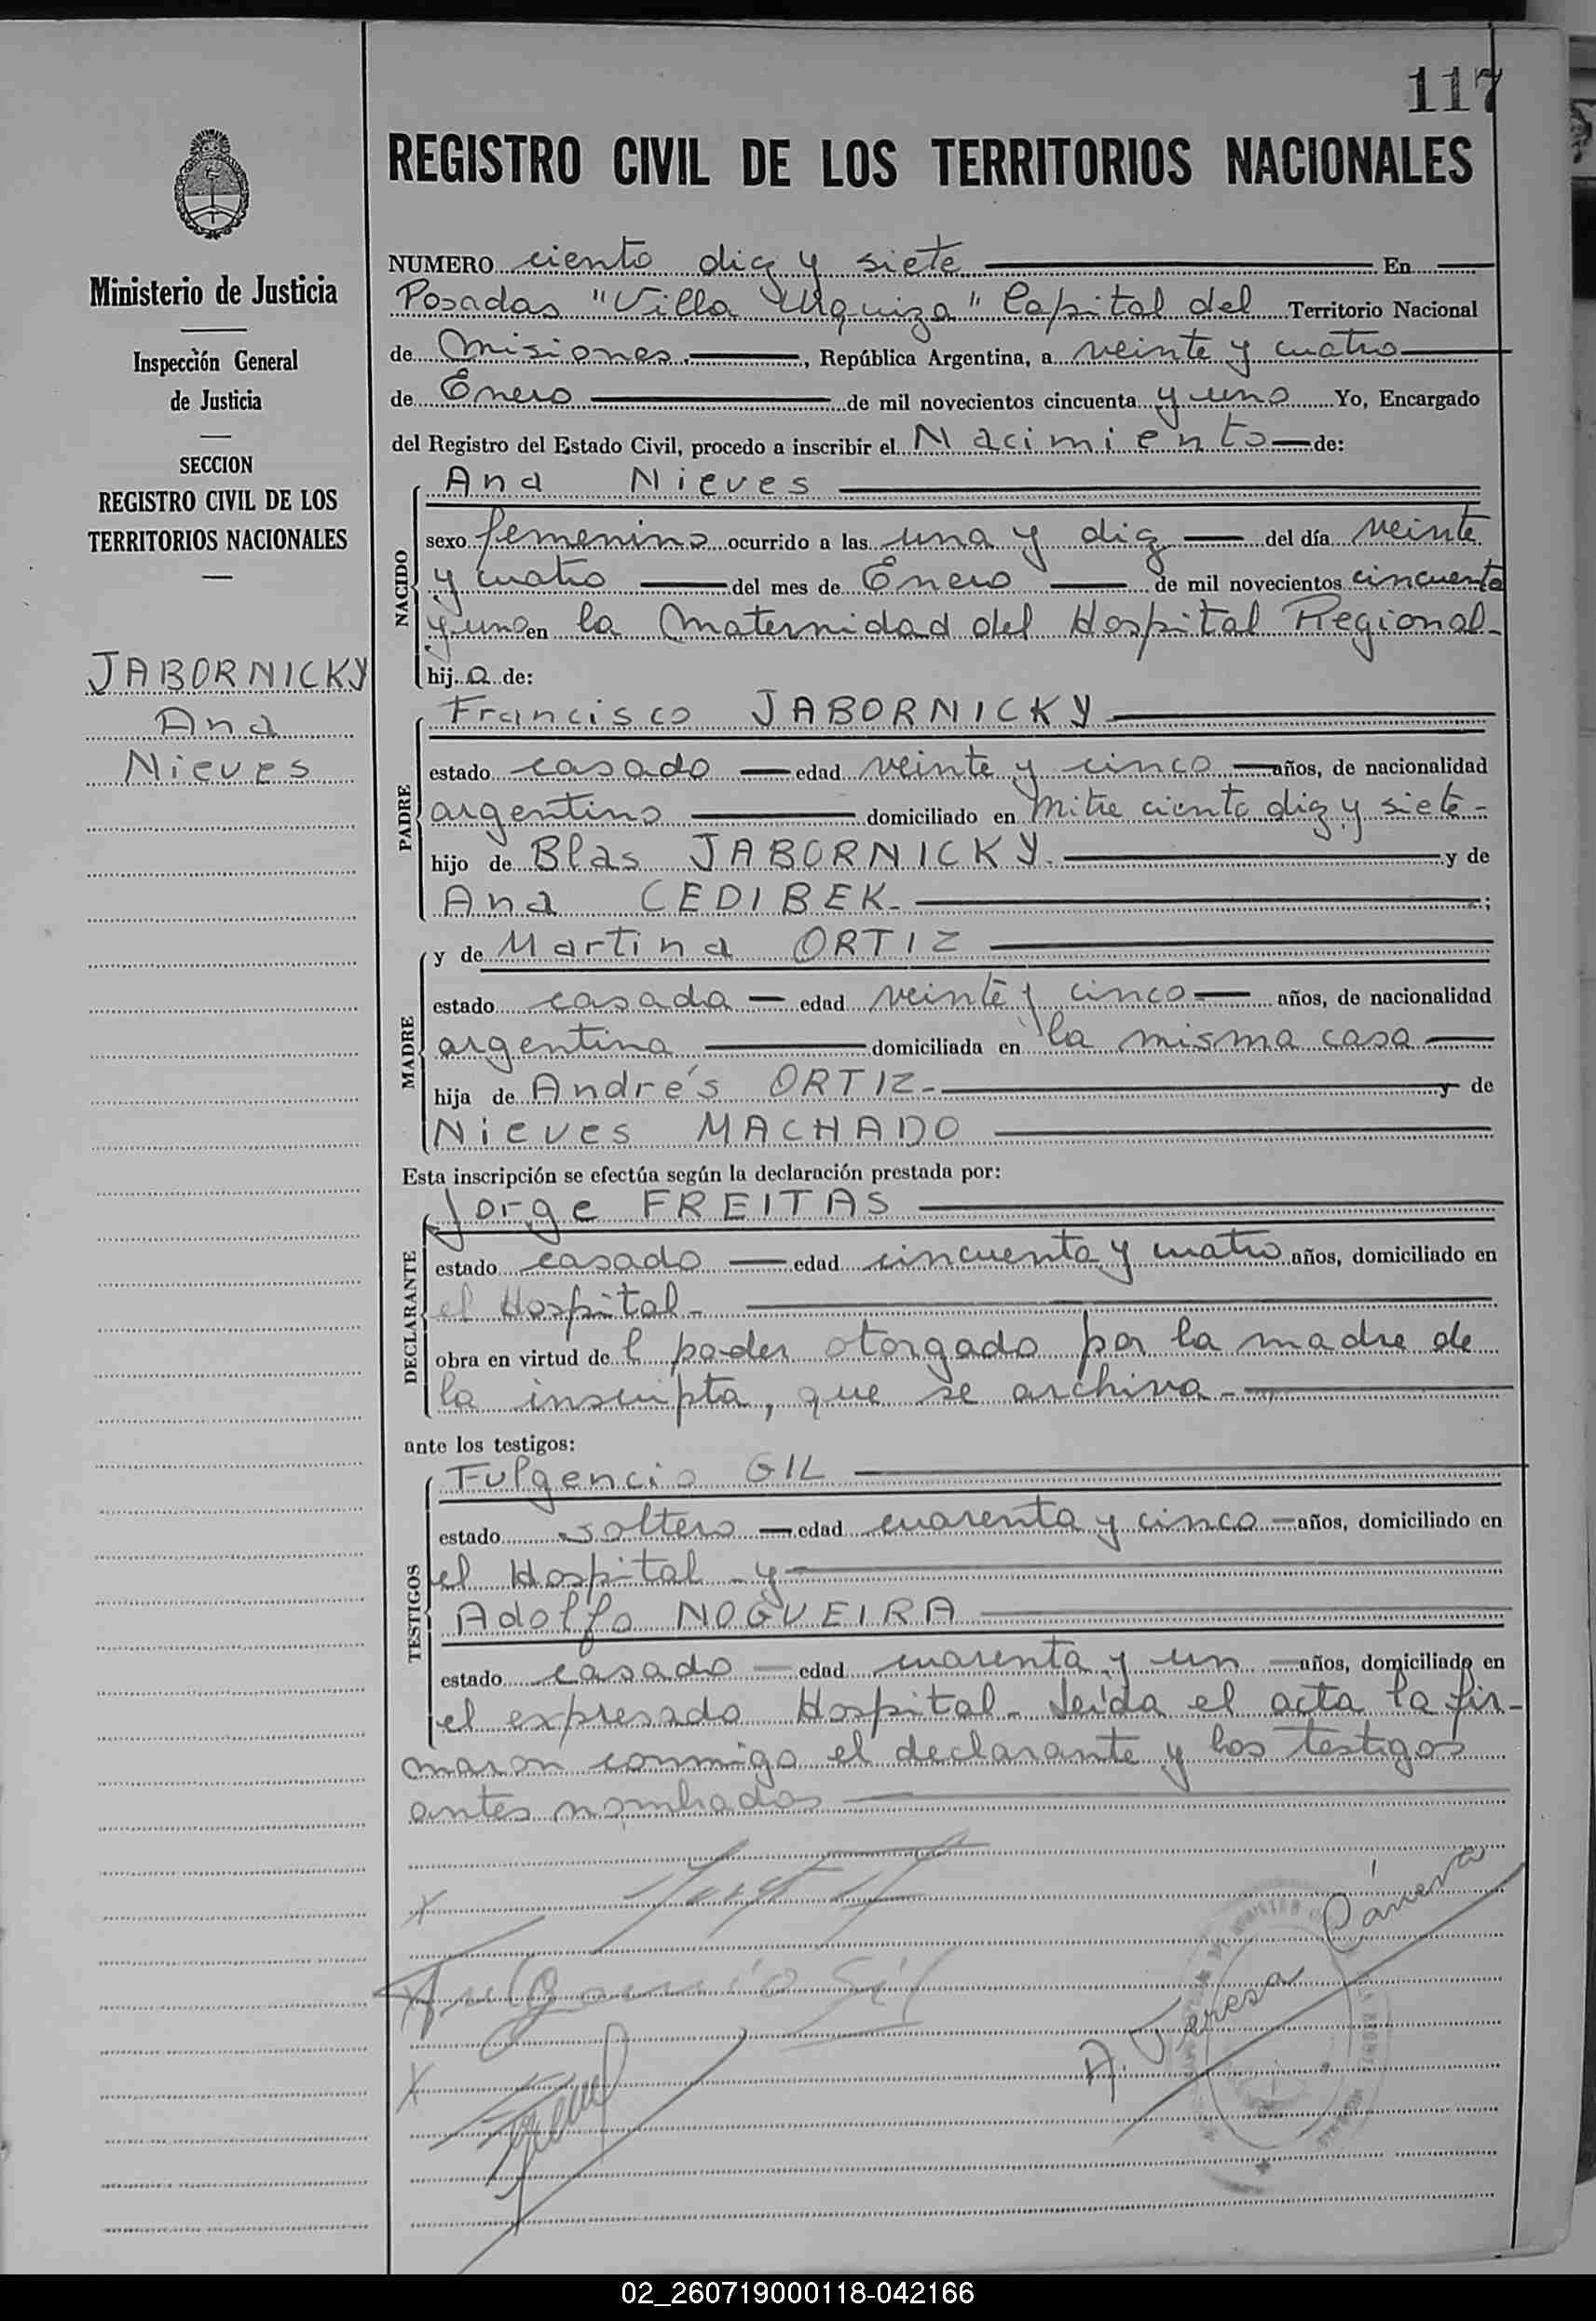 117
REGISTRO CIVIL DE LOS TERRITORIOS NACIONALES
Ministerio de Justicia
Inspección General
de Justicia
SECCION
REGISTRO CIVIL DE LOS
TERRITORIOS NACIONALES
JABORNICKY
Ana
Nieves
NUMERO ciento diez y siete En
Posadas "Villa Urquiza" Capital del Territorio Nacional
de Misiones, República Argentina, a veinte y cuatro
de Enero de mil novecientos cincuenta y uno Yo, Encargado
del Registro del Estado Civil, procedo a inscribir el Nacimiento de:
NACIDO
Ana Nieves
sexo femenino ocurrido a las una y diez del día veinte
y cuatro del mes de Enero de mil novecientos cincuenta
y uno en la Maternidad del Hospital Regional-
hija de:
PADRE
Francisco JABORNICKY
estado casado edad veinte y cinco años, de nacionalidad
argentino domiciliado en Mitre ciento diez y siete-
hijo de Blas JABORNICKY. y de
Ana CEDIBEK- ;
MADRE
y de Martina ORTIZ
estado casada edad veinte y cinco años, de nacionalidad
argentina domiciliada en la misma casa
hija de Andrés ORTIZ- y de
Nieves MACHADO
Esta inscripción se efectúa según la declaración prestada por:
DECLARANTE
Jorge FREITAS
estado casado edad cincuenta y cuatro años, domiciliado en
el Hospital-
obra en virtud del poder otorgado por la madre de
la inscripta, que se archiva-
ante los testigos:
TESTIGOS
Fulgencio GIL
estado soltero edad cuarenta y cinco años, domiciliado en
el Hospital - y
Adolfo NOGUEIRA
estado casado edad cuarenta y un años, domiciliado en
el expresado Hospital- Leída el acta la fir-
maron conmigo el declarante y los testigos
antes nombrados
Fulgencio Gil
A. Teresa Cámera
02_260719000118-042166